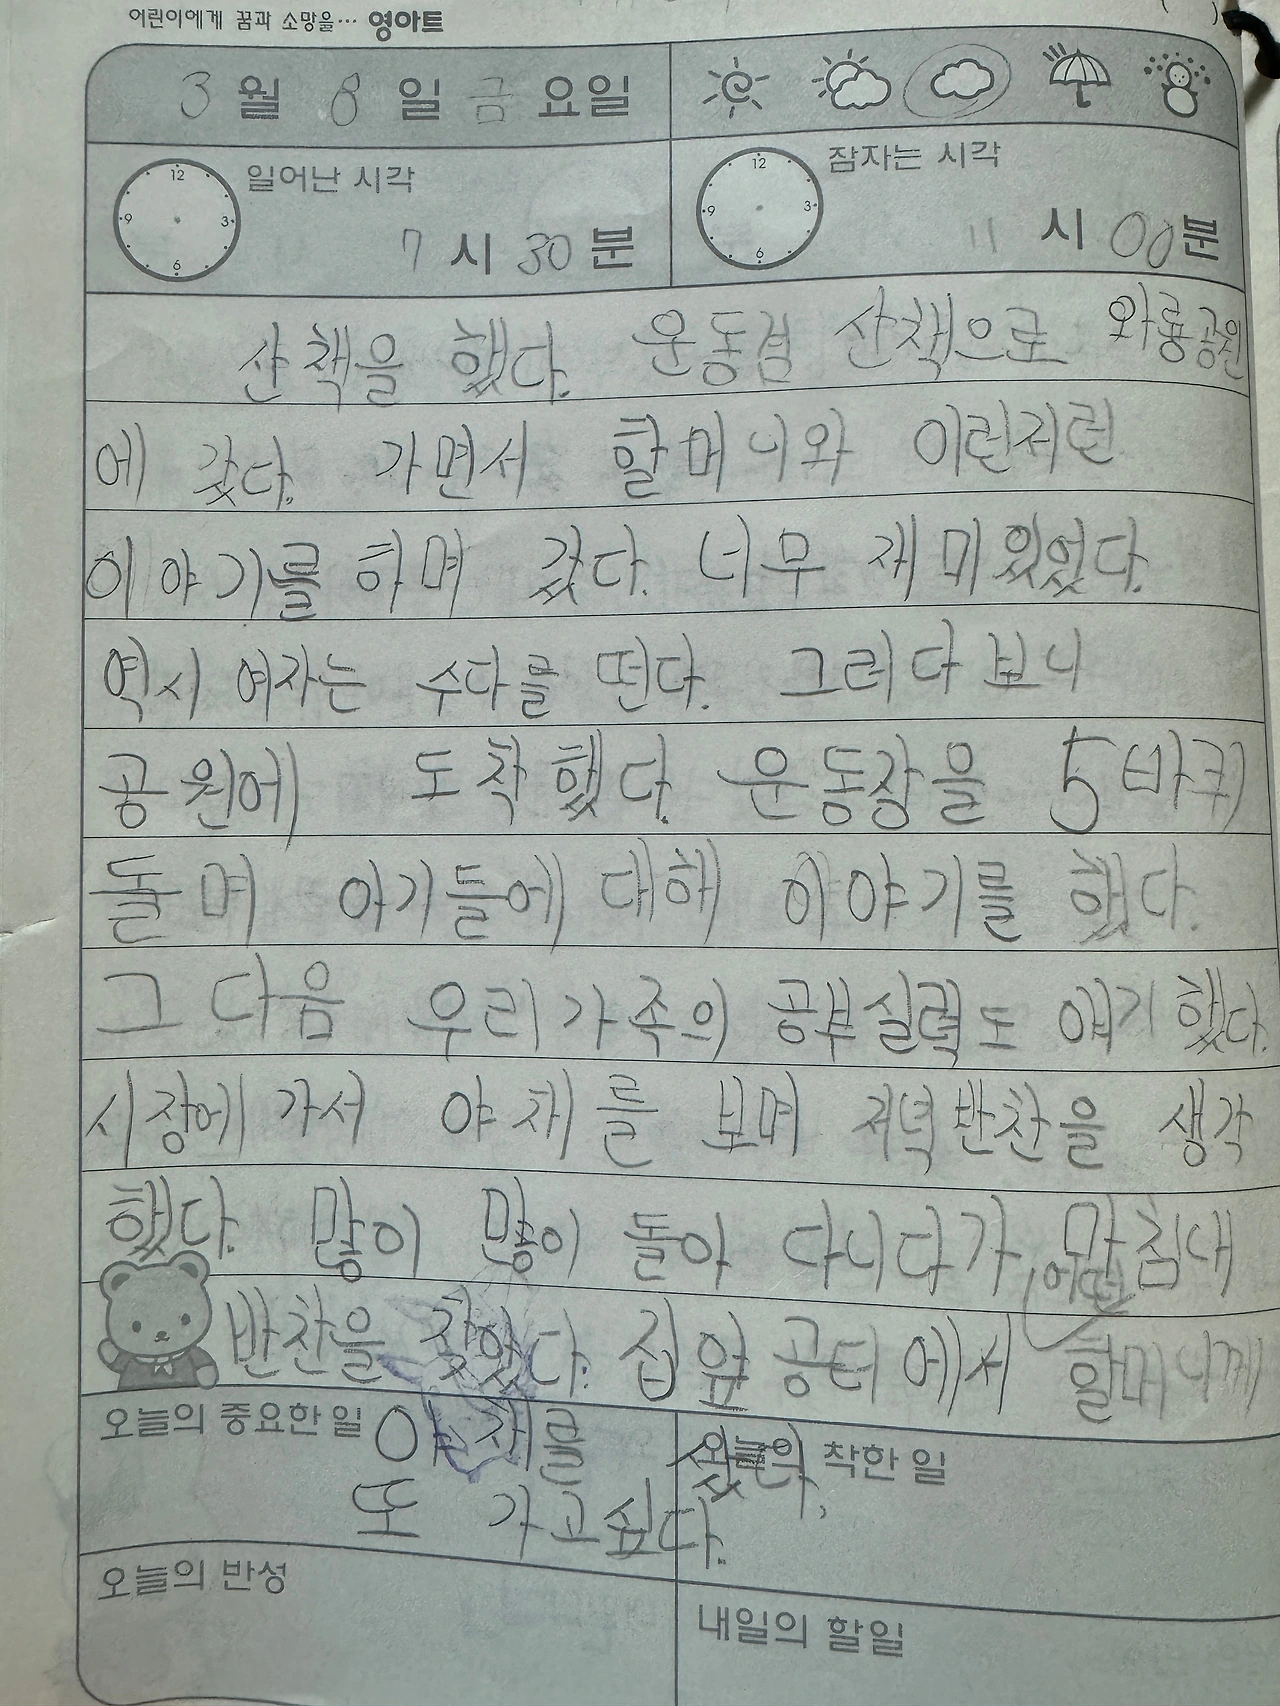 어린이에게 꿈과 소망을… 영아트
3월 8일 금요일
일어난 시각
12
3
6
9
7시 30분
잠자는 시각
12
3
6
9
11시 00분
산책을 했다. 운동겸 산책으로 와룡공원
에 갔다. 가면서 할머니와 이런저런
이야기를 하며 갔다. 너무 재미있었다.
역시 여자는 수다를 떤다. 그러다보니
공원에 도착했다. 운동장을 5바퀴
돌며 아기들에 대해 이야기를 했다.
그 다음 우리가족의 공부실력도 얘기했다.
시장에 가서 야채를 보며 저녁반찬을 생각
했다. 많이 많이 돌아 다니다가, 마침내
어떤
반찬을 찾았다. 집 앞 공터에서 할머니께
오늘의 중요한 일 야채를 샀다,
오늘의 착한 일
또 가고싶다.
오늘의 반성
내일의 할일